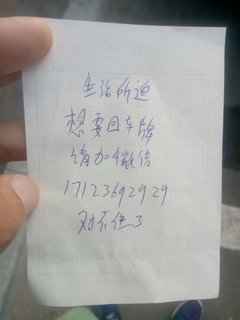 生活所迫
想要回车牌
请加微信
17123692929
对不住了